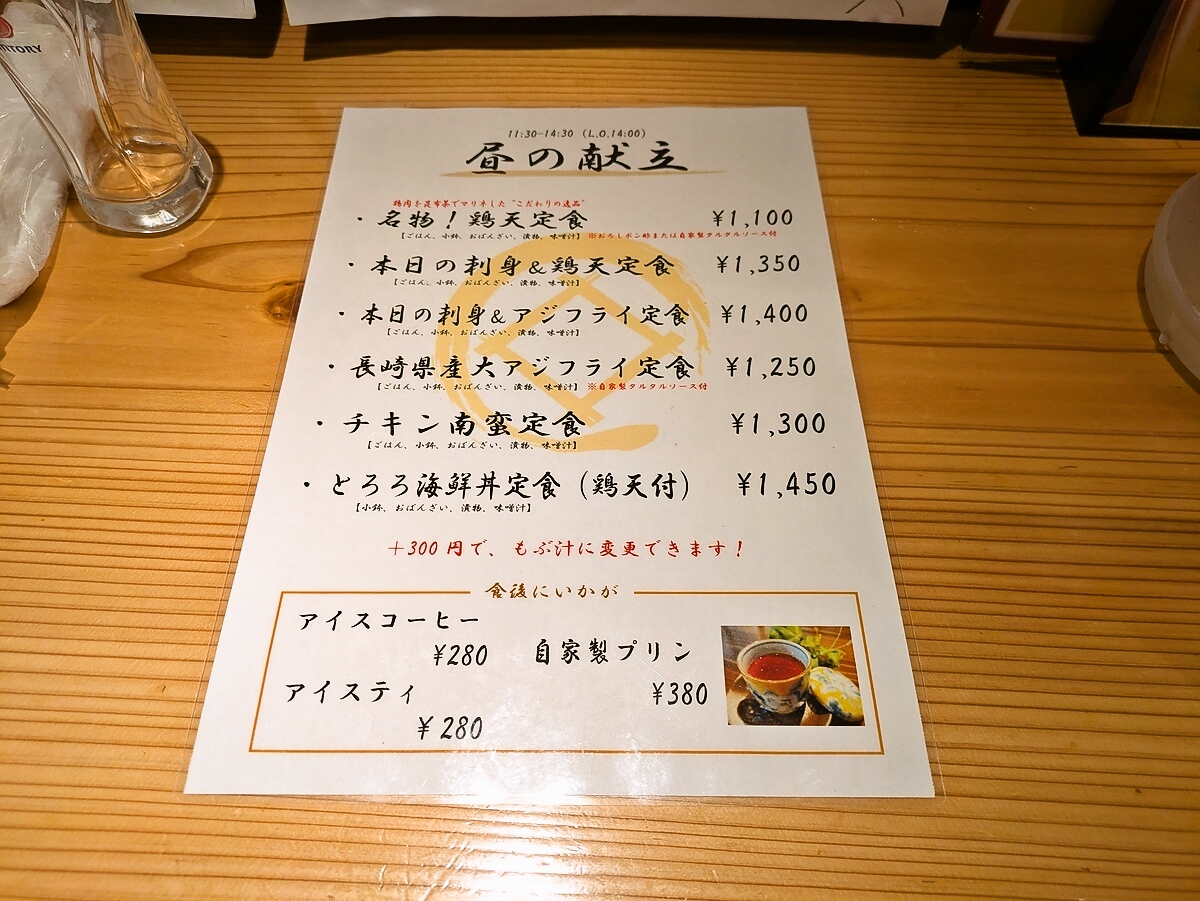 11:30-14:30 (L.O.14:00)
昼の献立
鶏肉を昆布茶でマリネした"こだわりの逸品"
・名物！鶏天定食 ¥1,100
【ごはん、小鉢、おばんざい、漬物、味噌汁】 ※おろしポン酢または自家製タルタルソース付
・本日の刺身&鶏天定食 ¥1,350
【ごはん、小鉢、おばんざい、漬物、味噌汁】
・本日の刺身&アジフライ定食 ¥1,400
【ごはん、小鉢、おばんざい、漬物、味噌汁】
・長崎県産大アジフライ定食 ¥1,250
【ごはん、小鉢、おばんざい、漬物、味噌汁】 ※自家製タルタルソース付
・チキン南蛮定食 ¥1,300
【ごはん、小鉢、おばんざい、漬物、味噌汁】
・とろろ海鮮丼定食（鶏天付） ¥1,450
【小鉢、おばんざい、漬物、味噌汁】
＋300円で、もぶ汁に変更できます！
食後にいかが
アイスコーヒー
¥280
自家製プリン
¥380
アイスティ
¥280